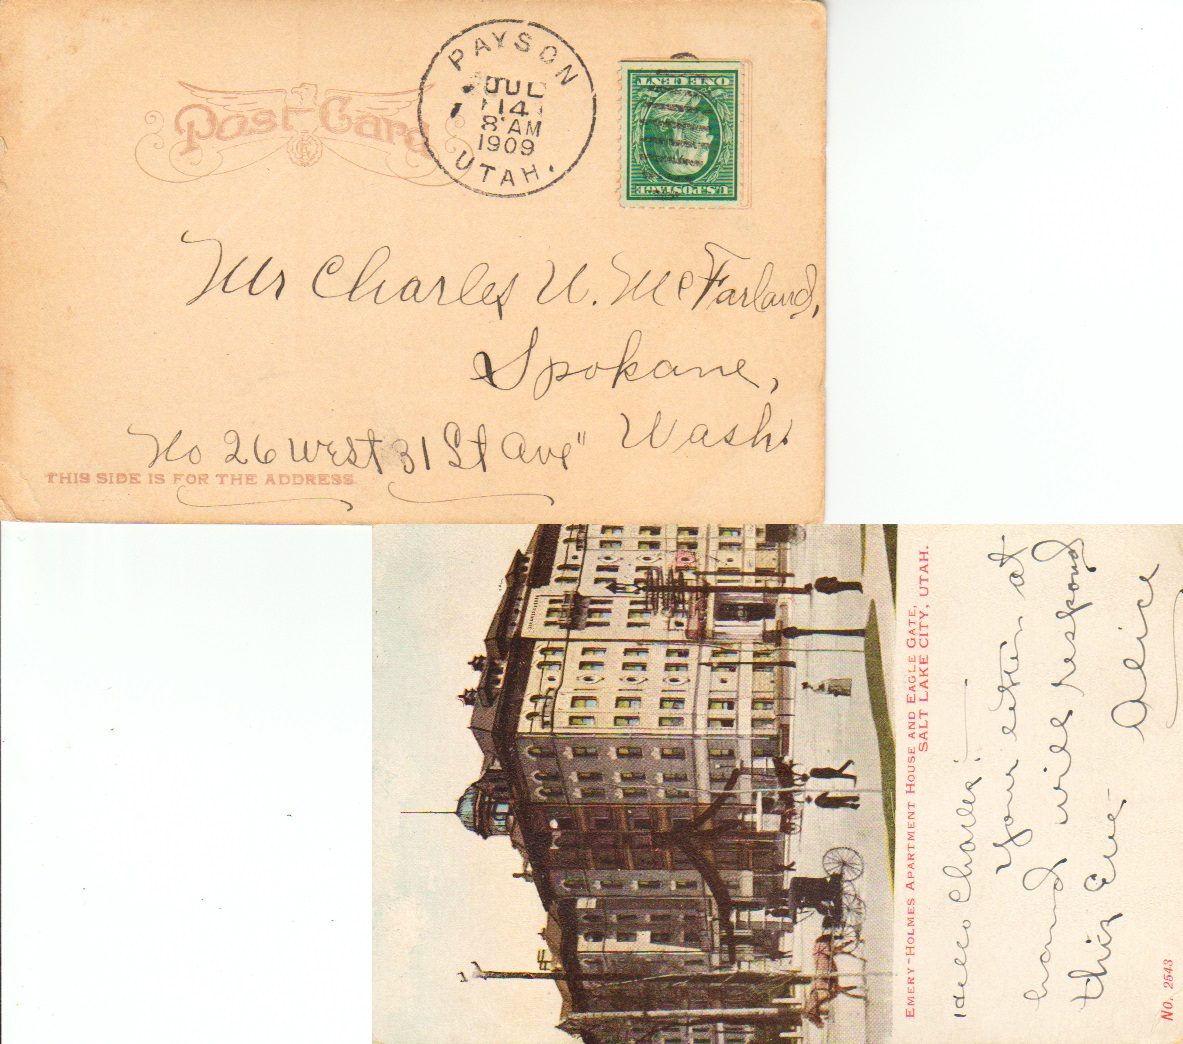 Post Card
PAYSON
JUL
14
8 AM
1909
UTAH.
ONE CENT
U.S. POSTAGE
Mr Charles W. McFarland,
Spokane,
Wash.
No 26 West 31 St Ave"
THIS SIDE IS FOR THE ADDRESS
EMERY-HOLMES APARTMENT HOUSE AND EAGLE GATE,
SALT LAKE CITY, UTAH.
Hello Charles!—
Your at
hand will respond
this Eve-
Alice
No. 2543